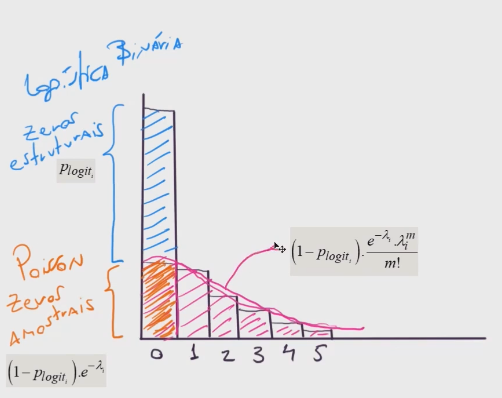 Logística Binária
Zeros
estruturais
p_{logit_i}
Poisson
Zeros
Amostrais
(1-p_{logit_i}).e^{-λ_i}
(1-p_{logit_i}).\frac{e^{-λ_i}.λ_i^m}{m!}
0 1 2 3 4 5